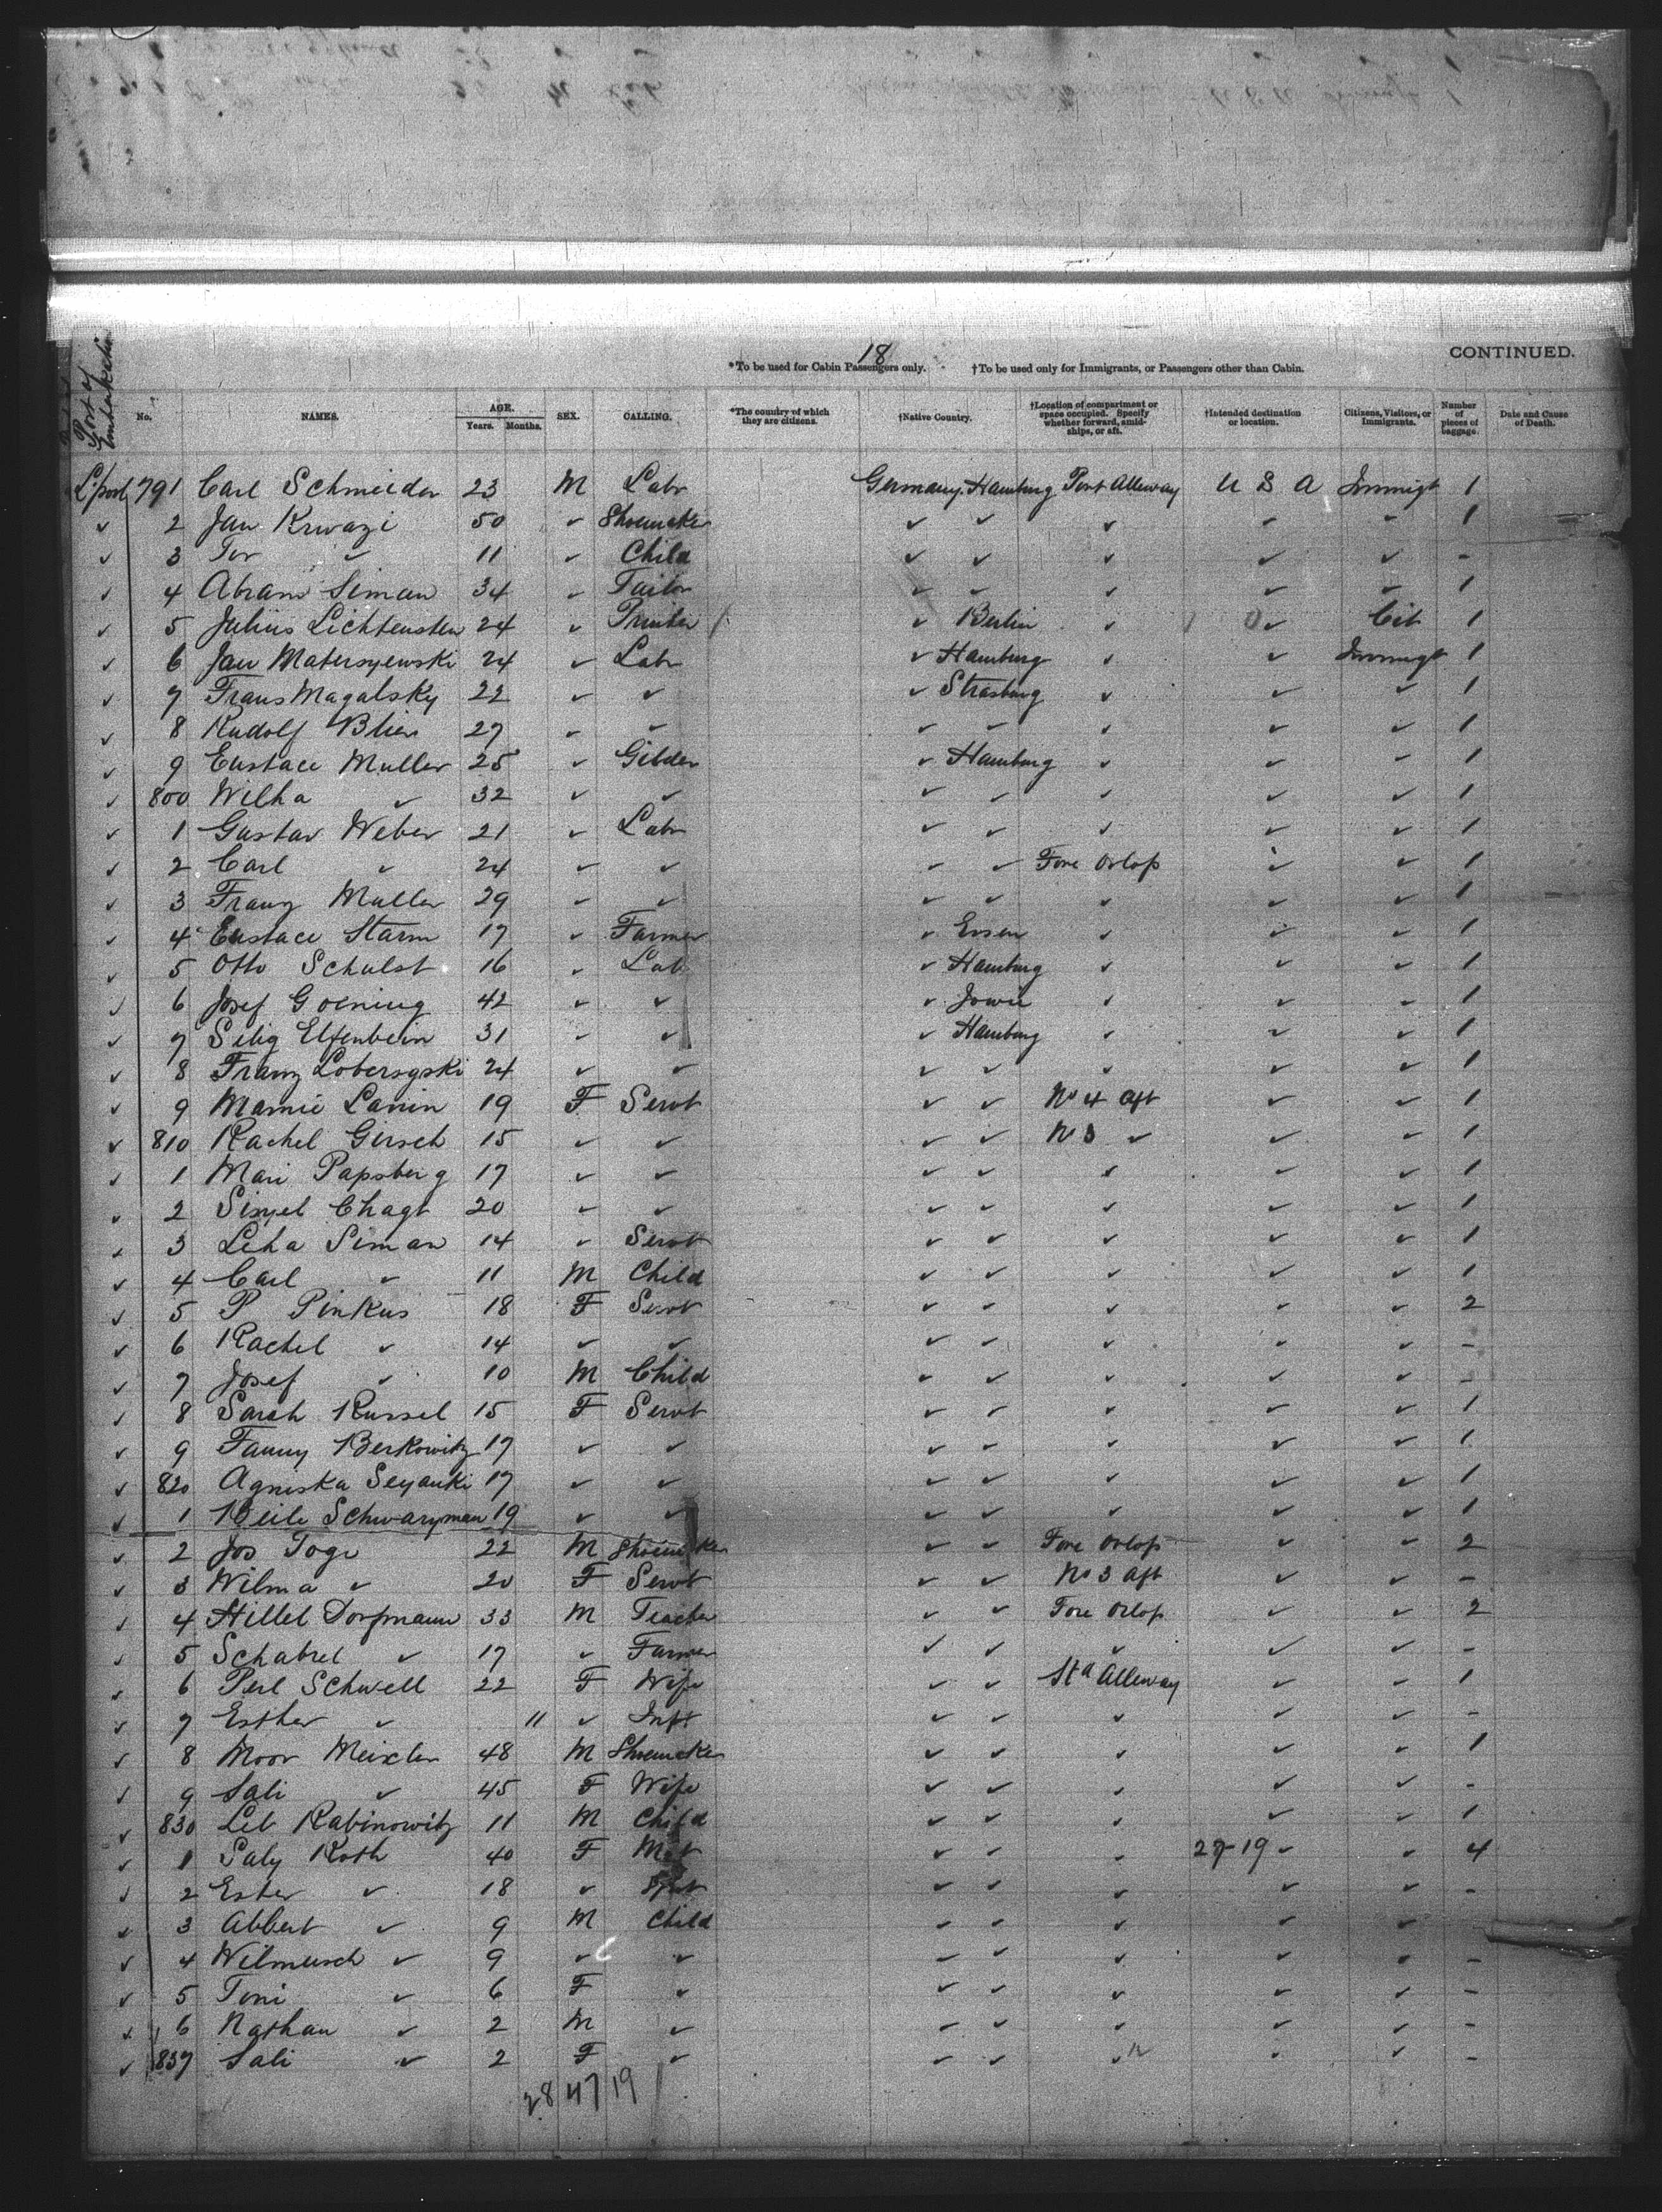 18
CONTINUED.
*To be used for Cabin Passengers only. †To be used only for Immigrants, or Passengers other than Cabin.
Port of Embarkation No. NAMES. AGE. Years. Months. SEX. CALLING. *The country of which they are citizens. †Native Country. †Location of compartment or space occupied. Specify whether forward, amidships, or aft. †Intended destination or location. Citizens, Visitors, or Immigrants. Number of pieces of baggage. Date and Cause of Death.
L'pool 791 Carl Schneider 23 M Labr Germany. Hamburg Port Alleway U S A Immigt 1
✓ 2 Jan Krwazi 50 ✓ Shoemaker ✓ ✓ ✓ ✓ ✓ 1
✓ 3 ✓ 11 ✓ Child ✓ ✓ ✓ ✓ ✓ -
✓ 4 Abram Siman 34 ✓ Tailor ✓ ✓ ✓ ✓ ✓ 1
✓ 5 Julius Lichtensten 24 ✓ Printer ✓ Berlin ✓ ✓ Cit 1
✓ 6 Jan Matersyewski 24 ✓ Labr ✓ Hamburg ✓ ✓ Immigt 1
✓ 7 Frans Magalsky 22 ✓ ✓ ✓ Strasburg ✓ ✓ ✓ 1
✓ 8 Rudolf Blier 27 ✓ ✓ ✓ ✓ ✓ ✓ ✓ 1
✓ 9 Eustace Muller 25 ✓ Gilder ✓ Hamburg ✓ ✓ ✓ 1
✓ 800 Wilha ✓ 32 ✓ ✓ ✓ ✓ ✓ ✓ ✓ 1
✓ 1 Gustav Weber 21 ✓ Labr ✓ ✓ ✓ ✓ ✓ 1
✓ 2 Carl ✓ 24 ✓ ✓ ✓ ✓ Fore Orlop ✓ ✓ 1
✓ 3 Franz Muller 29 ✓ ✓ ✓ ✓ ✓ ✓ ✓ 1
✓ 4 Eustace Starm 17 ✓ Farmer ✓ Essen ✓ ✓ ✓ 1
✓ 5 Otto Schulst 16 ✓ Lab ✓ Hamburg ✓ ✓ ✓ 1
✓ 6 Josef Goening 42 ✓ ✓ ✓ ✓ ✓ ✓ 1
✓ 7 Selig Elfenbein 31 ✓ ✓ ✓ Hamburg ✓ ✓ ✓ 1
✓ 8 Franz Lobersgski 24 ✓ ✓ ✓ ✓ ✓ ✓ ✓ 1
✓ 9 Mamie Lanin 19 F Servt ✓ ✓ No 4 Aft ✓ ✓ 1
✓ 810 Rachel Girsch 15 ✓ ✓ ✓ ✓ No 3 ✓ ✓ ✓ 1
✓ 1 Mari Papsberg 17 ✓ ✓ ✓ ✓ ✓ ✓ ✓ 1
✓ 2 Sisyel Chagt 20 ✓ ✓ ✓ ✓ ✓ ✓ ✓ 1
✓ 3 Leha Siman 14 ✓ Servt ✓ ✓ ✓ ✓ ✓ 1
✓ 4 Carl ✓ 11 M Child ✓ ✓ ✓ ✓ ✓ 1
✓ 5 P Pinkus 18 F Servt ✓ ✓ ✓ ✓ ✓ 2
✓ 6 Rachel ✓ 14 ✓ ✓ ✓ ✓ ✓ ✓ ✓ -
✓ 7 Josef ✓ 10 M Child ✓ ✓ ✓ ✓ ✓ -
✓ 8 Sarah Russel 15 F Servt ✓ ✓ ✓ ✓ ✓ 1
✓ 9 Fanny Berkowitz 17 ✓ ✓ ✓ ✓ ✓ ✓ ✓ 1
✓ 820 Agniska Seyanki 17 ✓ ✓ ✓ ✓ ✓ ✓ ✓ 1
✓ 1 Beile Schwarzman 19 ✓ ✓ ✓ ✓ ✓ ✓ ✓ 1
✓ 2 Jos Togi 22 M Shoemaker ✓ ✓ Fore Orlop ✓ ✓ 2
✓ 3 Wilma ✓ 20 F Servt ✓ ✓ No 3 Aft ✓ ✓ -
✓ 4 Hillel Dorfmann 33 M Teacher ✓ ✓ Fore Orlop ✓ ✓ 2
✓ 5 Schabel ✓ 17 ✓ Farmer ✓ ✓ ✓ ✓ ✓ -
✓ 6 Perl Schwell 22 F Wife ✓ ✓ Std Alleway ✓ ✓ 1
✓ 7 Esther ✓ 11 ✓ Inft ✓ ✓ ✓ ✓ ✓ -
✓ 8 Moor Meixler 48 M Shoemaker ✓ ✓ ✓ ✓ ✓ 1
✓ 9 Sali ✓ 45 F Wife ✓ ✓ ✓ ✓ ✓ -
✓ 830 Leb Rabinowitz 11 M Child ✓ ✓ ✓ ✓ ✓ 1
✓ 1 Saly Roth 40 F ✓ ✓ ✓ 27-19 ✓ ✓ 4
✓ 2 Ester ✓ 18 ✓ ✓ ✓ ✓ ✓ ✓ -
✓ 3 Abbert ✓ 9 M Child ✓ ✓ ✓ ✓ ✓ -
✓ 4 Wilmersch ✓ 9 ✓ ✓ ✓ ✓ ✓ ✓ ✓ -
✓ 5 Toni ✓ 6 F ✓ ✓ ✓ ✓ ✓ ✓ -
✓ 6 Nathan ✓ 2 M ✓ ✓ ✓ ✓ ✓ ✓ -
✓ 837 Sali ✓ 2 F ✓ ✓ ✓ ✓ ✓ ✓ -
28 47 19